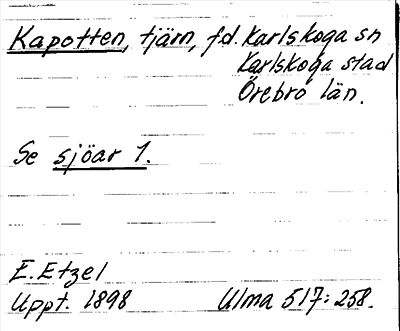 Kapotten, tjärn, f.d. Karlskoga sn
Karlskoga stad
Örebro län.
Se sjöar 1.
E. Etzel
Uppt. 1898 Ulma 517:258.